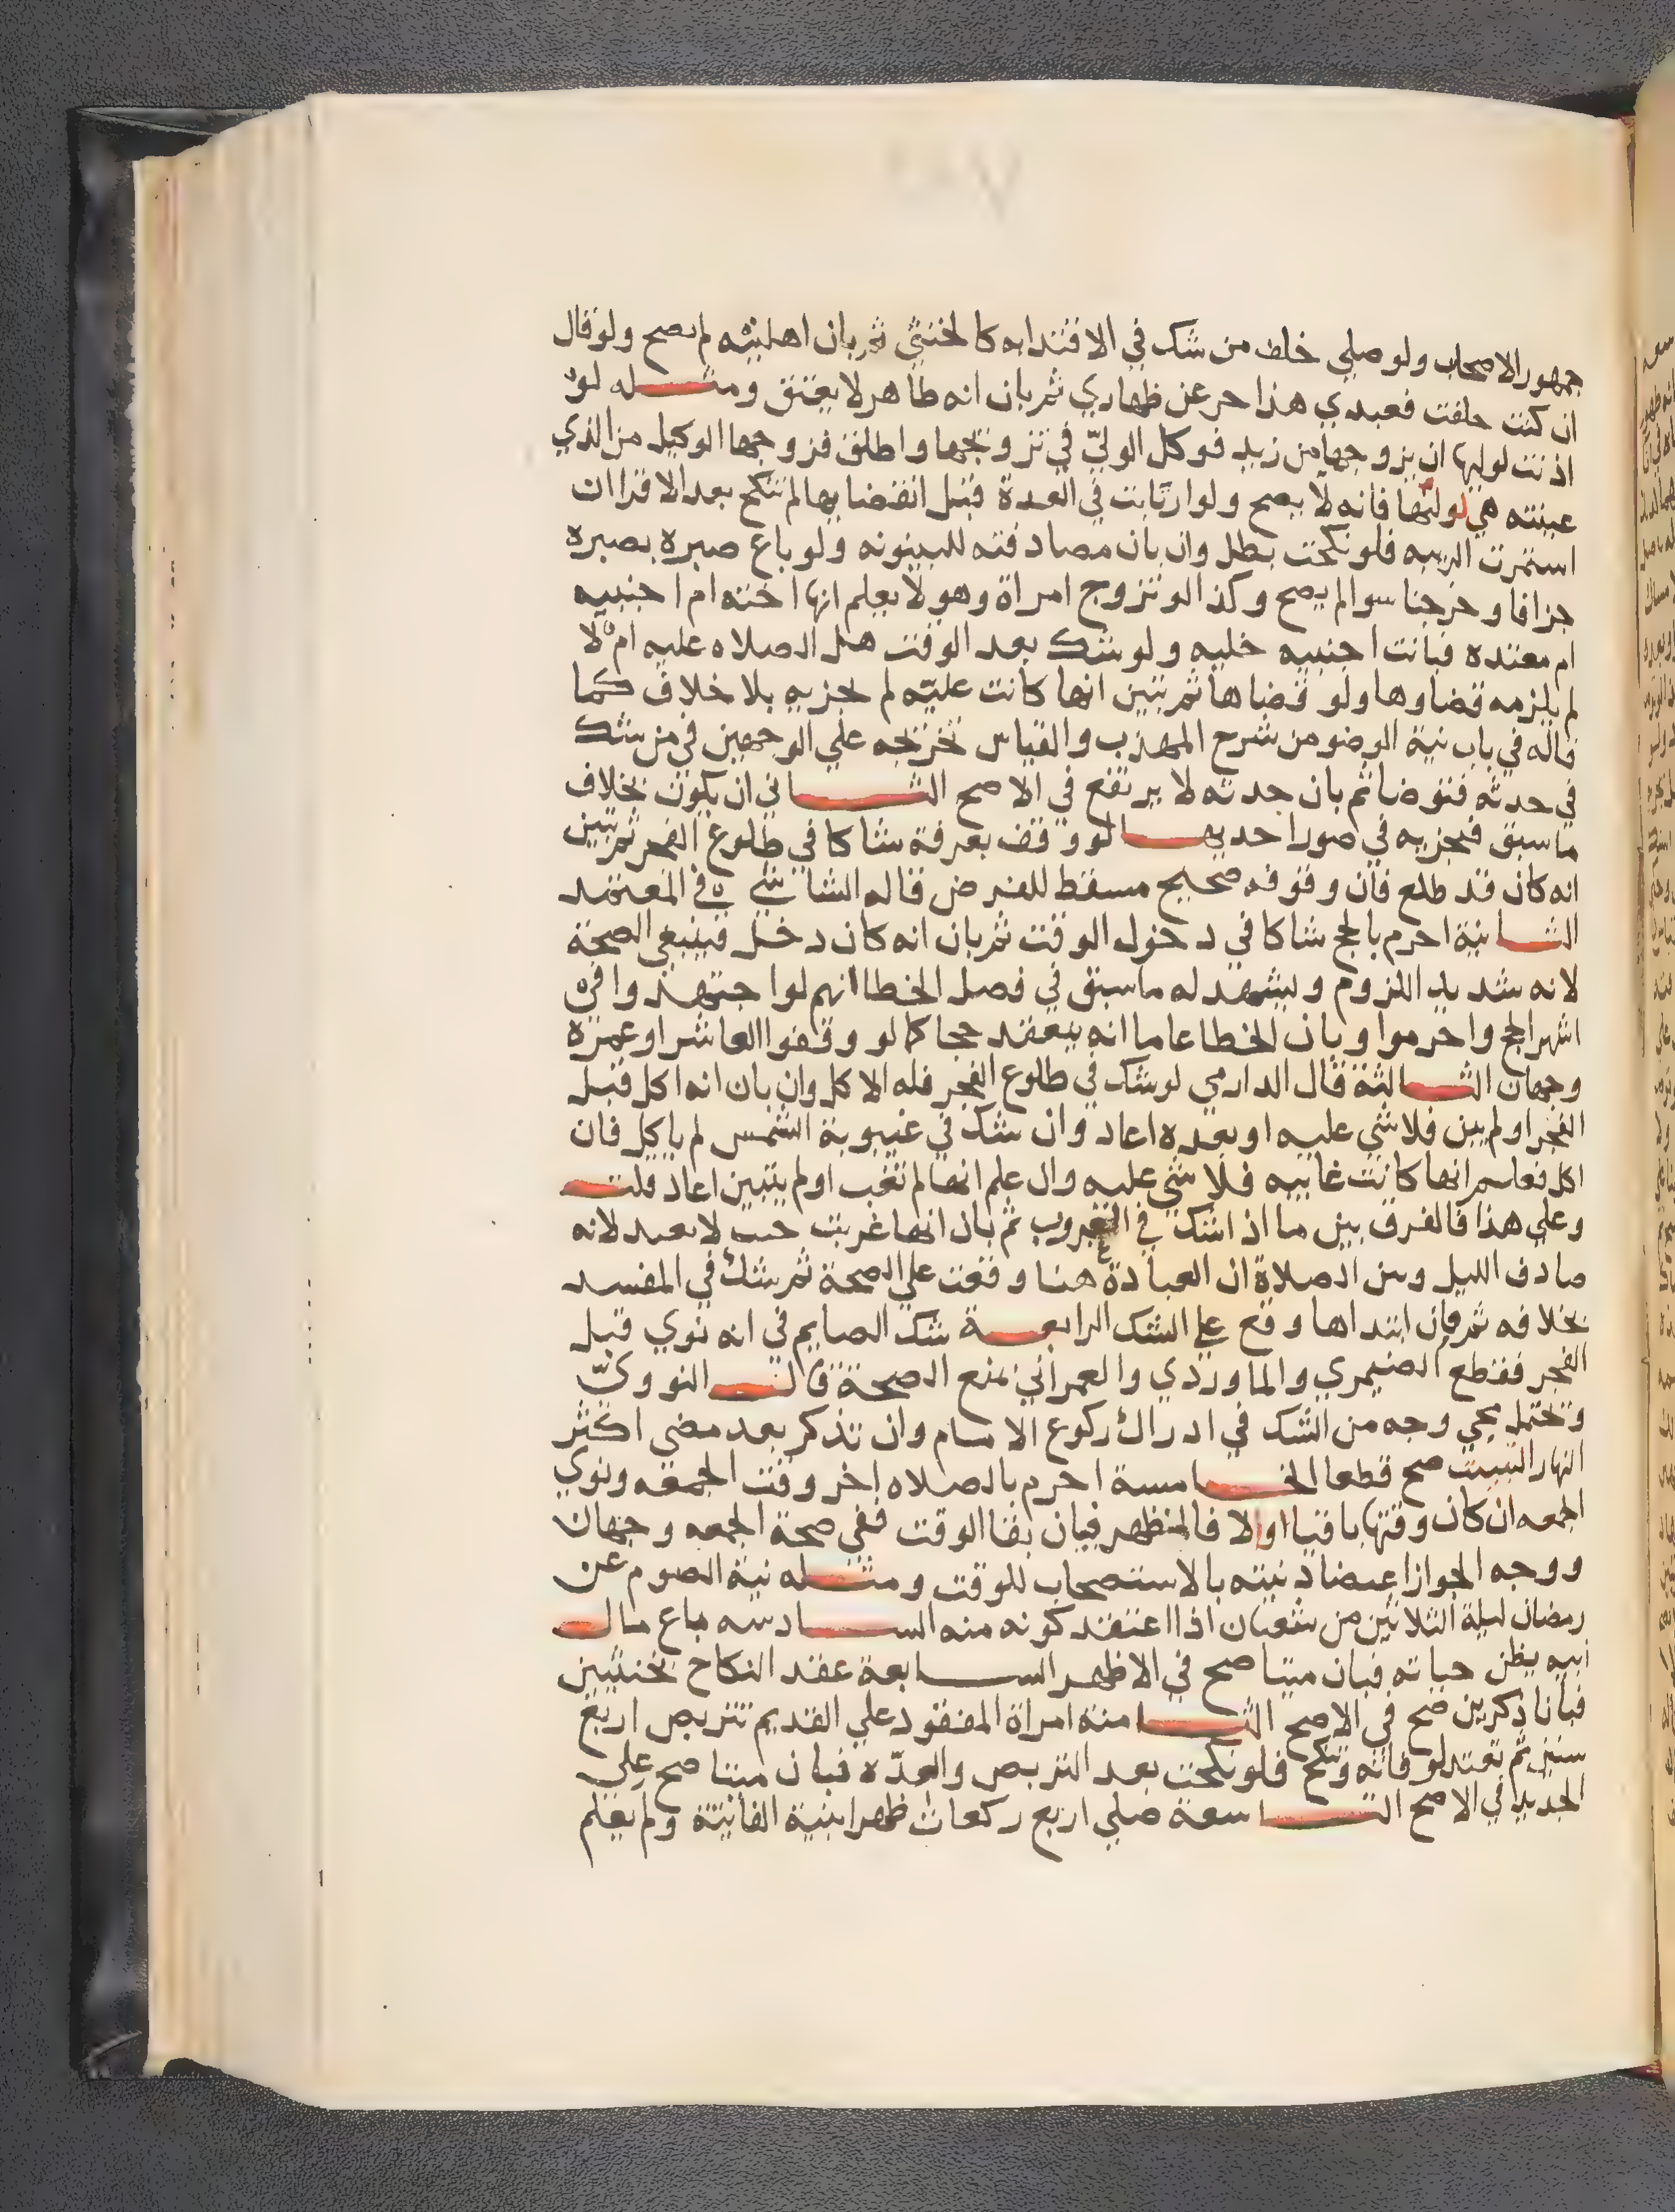 جمهور الاصحاب ولو صلي خلف من شك في الاقتدا به كالخنثي ثم بان اهليته لم يصح ولو قال
ان كنت حلفت فعبدي هذا حر عن ظهاري ثم بان انه ظاهر لا يعتق ومثله لو
اذنت لوليها ان يزوجها من زيد فوكل الوليّ في تزويجها واطلق فزوجها الوكيل من الذي
عينته هي لوليها فانه لا يصح ولو ارتابت في العدة قبل انقضايها لم تنكح بعد الاقرا ان
استمرت الريبه فلو نكحت بطل وان بان مصادفته للبينونه ولو باع صبره بصبره
جزافا وخرجتا سوا لم يصح وكذا لو تزوج امراة وهو لا يعلم انها اخته ام اجنبيه
ام معتده فبانت اجنبيه خليه ولو شك بعد الوقت هل الصلاه عليه ام لا
لم يلزمه قضاوها ولو قضاها ثم تبين انها كانت عليه لم تجزيه بلا خلاف كما
قاله في باب نية الوضو من شرح المهذب والقياس تخريجه علي الوجهين في من شك
في حدثه فتوضا ثم بان حدثه لا يرتفع في الاصح الثاني ان يكون بخلاف
ما سبق فيجزيه في صور احديها لو وقف بعرفة شاكا في طلوع الفجر ثم تبين
انه كان قد طلع فان وقوفه صحيح مسقط للفرض قاله الشاشي في المعتمد
الثانية احرم بالحج شاكا في دخول الوقت ثم بان انه كان دخل فينبغي الصحة
لانه شديد اللزوم ويشهد له ما سبق في فصل الخطا انهم لو اجتهدوا في
اشهر الحج واحرموا وبان الخطا عاما انه ينعقد حجا كما لو وقفوا العاشر او عمرة
وجهان الثالثة قال الدارمي لو شك في طلوع الفجر فله الاكل وان بان انه اكل قبل
الفجر او لم يبن فلا شي عليه او بعده اعاد وان شك في غيبوبة الشمس لم ياكل فان
اكل فعلم انها كانت غايبه فلا شي عليه وان علم انها لم تغب او لم يتبين اعاد قلت
وعلي هذا فالفرق بين ما اذا شك في الغروب ثم بان انها غربت حيث لا يعيد لانه
صادف الليل وبين الصلاة ان العبادة هنا وقعت علي الصحة ثم شك في المفسد
بخلافه ثم فان ابتداها وقع علي الشك الرابعة شك الصايم في انه نوي قبل
الفجر فقطع الصيمري والماوردي والعمراني بمنع الصحة قال النوويّ
ويحتمل مجي وجه من الشك في ادراك ركوع الامام وان تذكر بعد مضي اكثر
النهار التبييت صح قطعا الخامسة احرم بالصلاه اخر وقت الجمعه ونوي
الجمعه ان كان وقتها باقيا والا فالظهر فبان بقا الوقت ففي صحة الجمعه وجهان
ووجه الجواز اعتضاد نيته بالاستصحاب للوقت ومثله نية الصوم عن
رمضان ليلة الثلاثين من شعبان اذا اعتقد كونه منه السادسه باع مال
ابيه يظن حياته فبان ميتا صح في الاظهر السابعة عقد النكاح بخنثيين
فبانا ذكرين صح في الاصح الثامنه امراة المفقود علي القديم تتربص اربع
سنين ثم تعتد لوفاته وتنكح فلو نكحت بعد التربص والعدّه فبان ميتا صح علي
الجديد في الاصح التاسعة صلي اربع ركعات ظهرا بنية الفائتة ولم يعلم